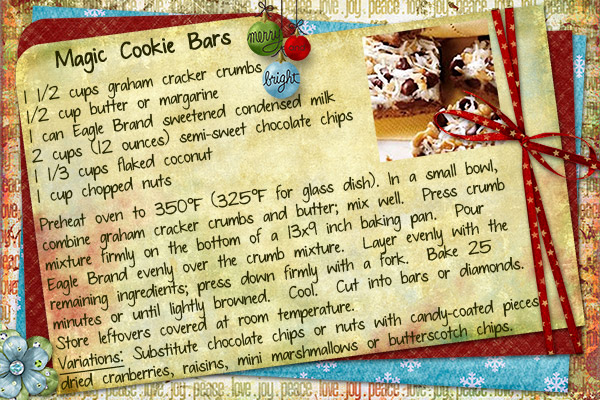 Magic Cookie Bars
merry
bright
1 1/2 cups graham cracker crumbs
1/2 cup butter or margarine
1 can Eagle Brand sweetened condensed milk
2 cups (12 ounces) semi-sweet chocolate chips
1 1/3 cups flaked coconut
1 cup chopped nuts
Preheat oven to 350°F (325°F for glass dish). In a small bowl,
combine graham cracker crumbs and butter; mix well. Press crumb
mixture firmly on the bottom of a 13x9 inch baking pan. Pour
Eagle Brand evenly over the crumb mixture. Layer evenly with the
remaining ingredients; press down firmly with a fork. Bake 25
minutes or until lightly browned. Cool. Cut into bars or diamonds.
Store leftovers covered at room temperature.
Variations: Substitute chocolate chips or nuts with candy-coated pieces
dried cranberries, raisins, mini marshmallows or butterscotch chips.
joy. peace. love. joy. peace. love. joy. peace.